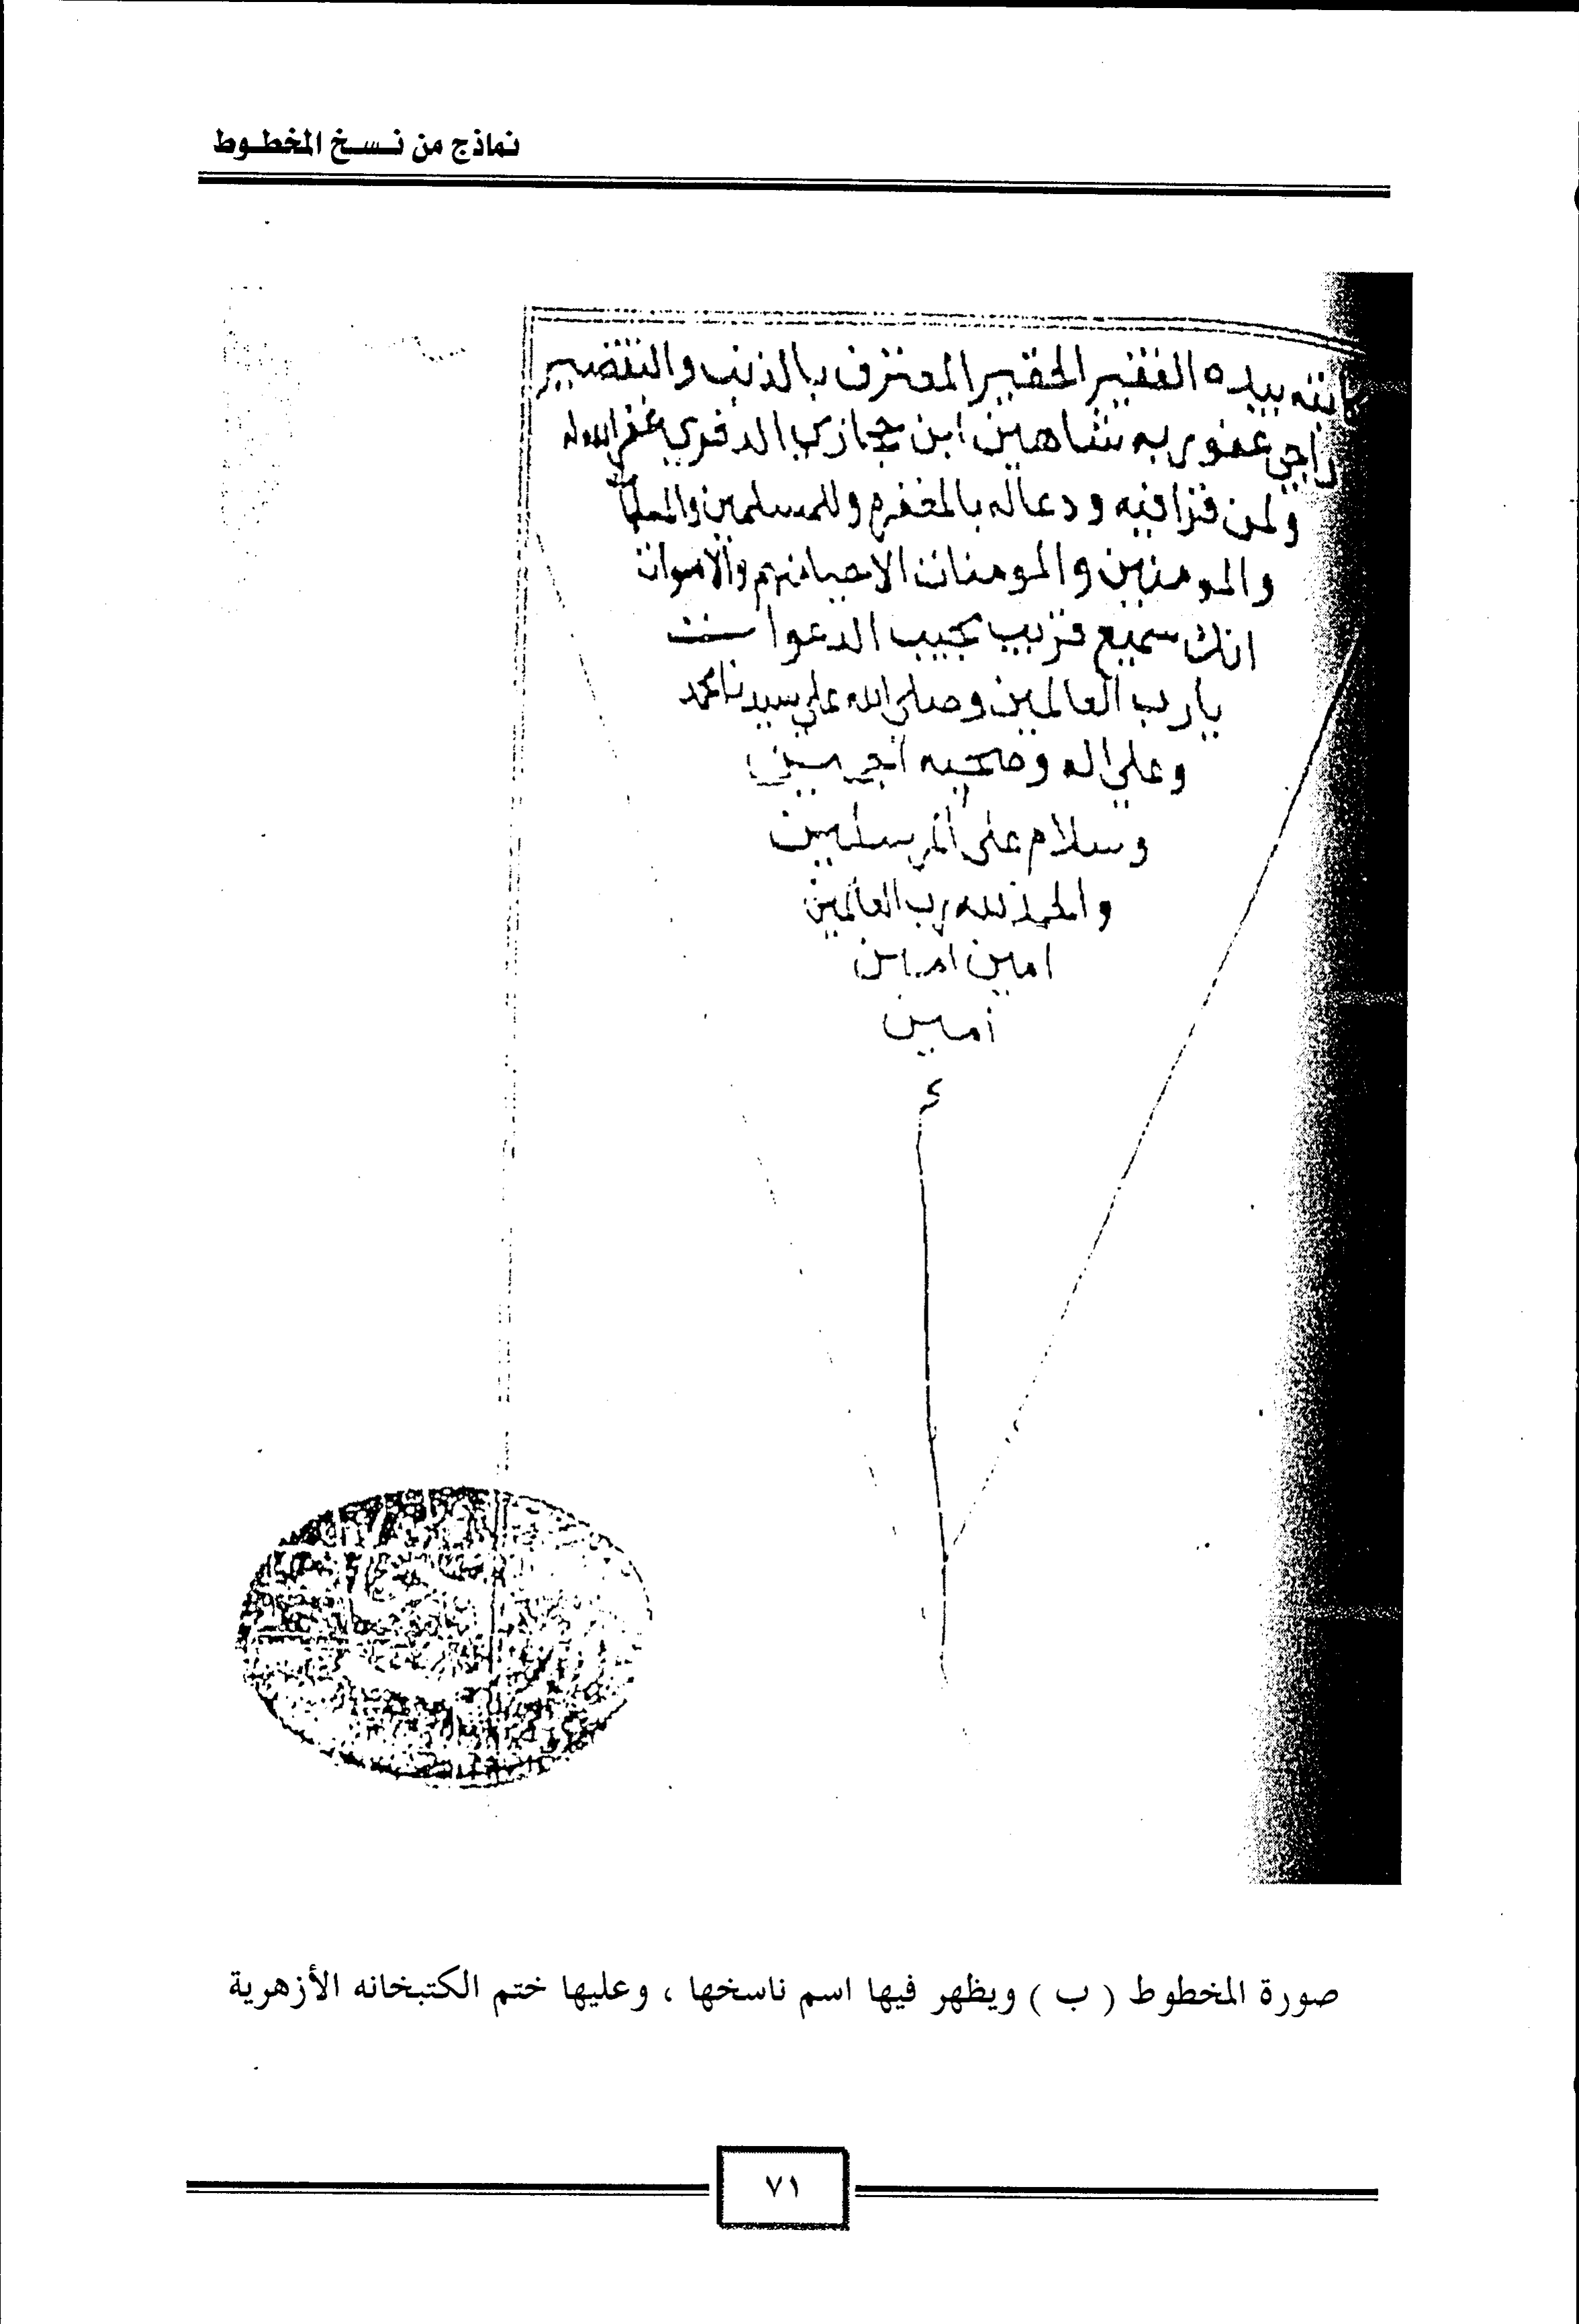 نماذج من نسخ المخطوط
كاتبه بيده الفقير الحقير المعترف بالذنب والتقصير
راجي عفو ربه شاهين ابن حجازي الدفري غفر الله له
ولمن قرا فيه ودعا له بالمغفرة وللمسلمين والمسلمات
والمومنين والمومنات الاحيا منهم والاموات
انك سميع قريب مجيب الدعوات
يا رب العالمين وصلي الله علي سيدنا محمد
وعلي اله وصحبه اجمعين
وسلام على المرسلين
والحمد لله رب العالمين
امين امين
امين
صورة المخطوط ( ب ) ويظهر فيها اسم ناسخها ، وعليها ختم الكتبخانه الأزهرية
٧١